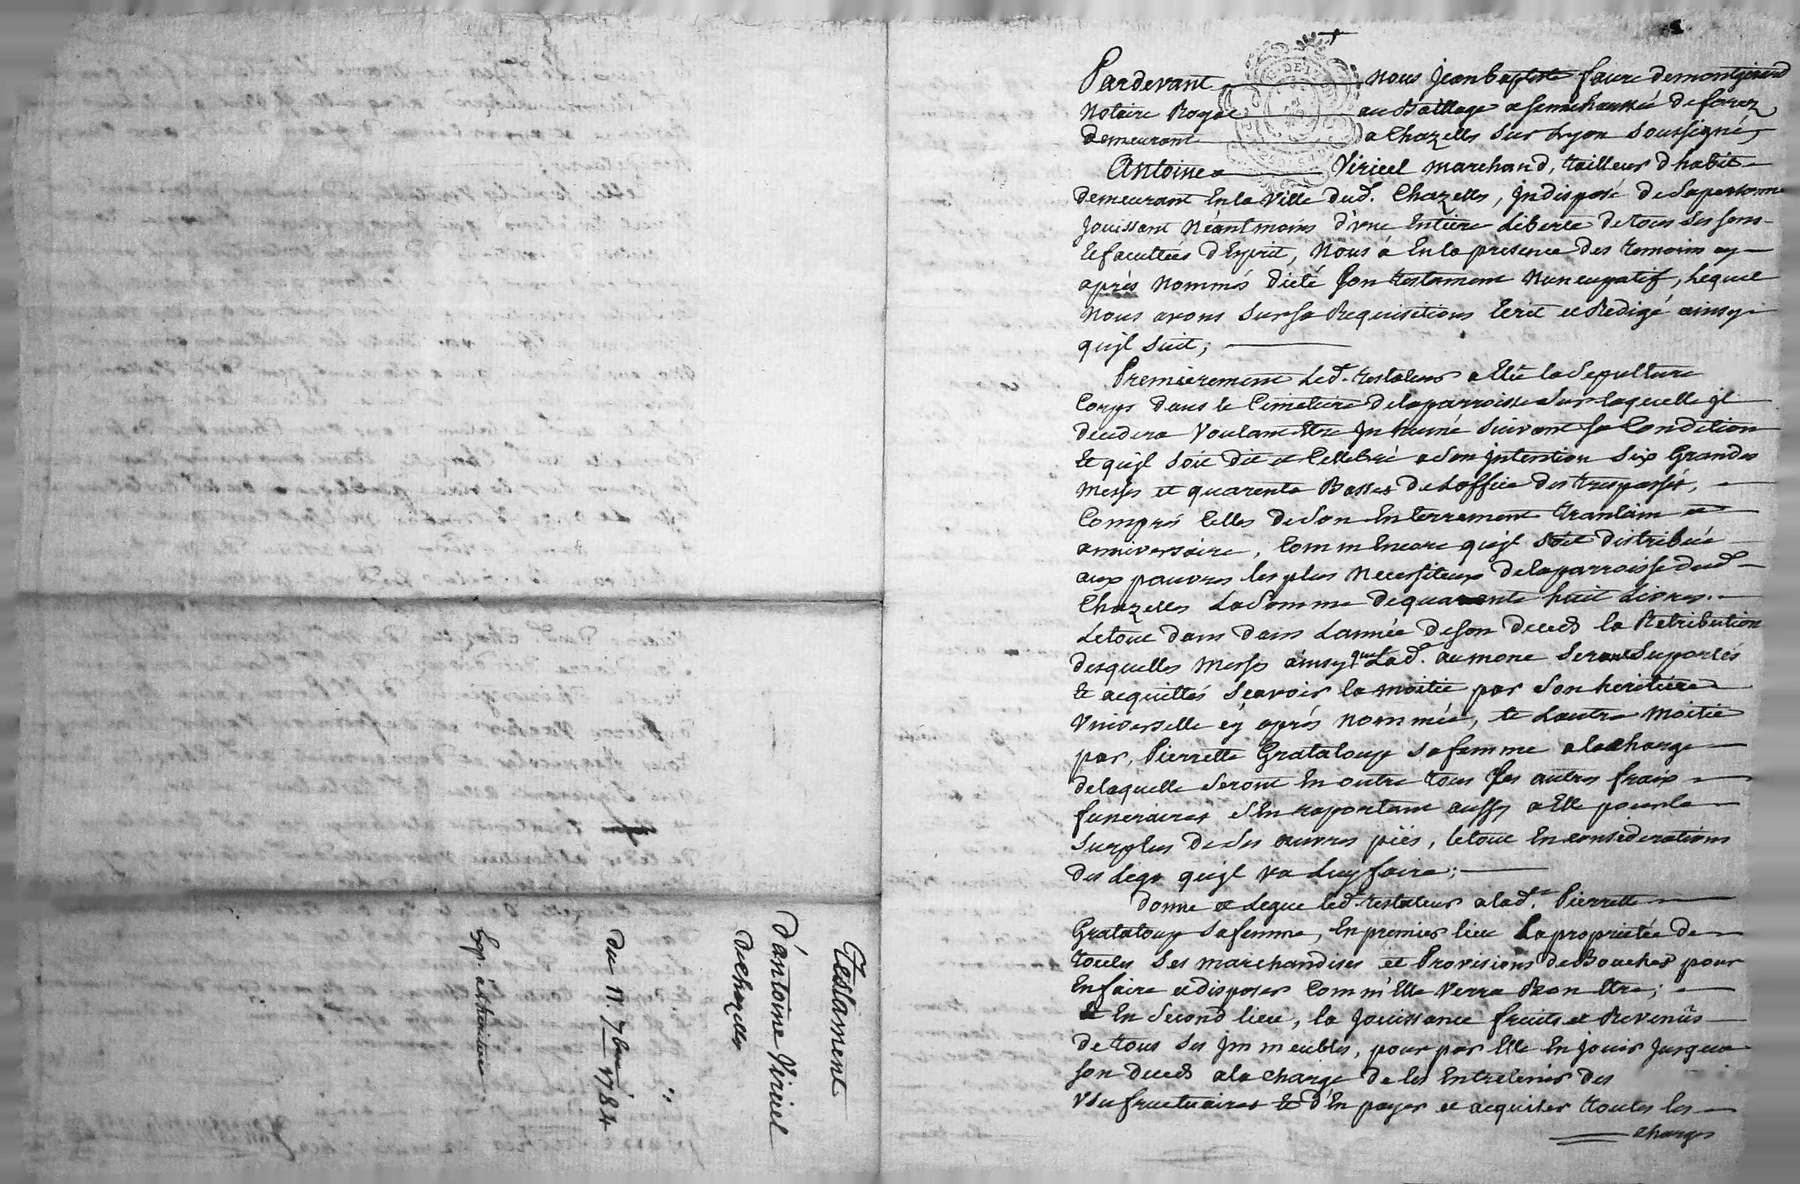 Pardevant nous jean baptiste faure demontgirard
Notaire Royal au Baillage et senechaussée de forez
demeurant a Chazelles sur Lyon soussigné,
Antoine Viricel marchand, tailleur d'habit
demeurant en la ville dud. Chazelles, jndisposé de sa personne
jouissant Néantmoins d'une Entiere Liberté de tous ses sens
et facultées d'Esprit, Nous á en la presence des temoins cy
aprés Nommés dicté son testament Nuncupatif, Lequel
Nous avons sur sa Requisitions Ecrit et Redigé ainsy
qu'jl suit;
Premierement Led. testateur a Elû la Sepulture
Corps dans le Cimetiere de la parroisse sur laquelle jl
decedera Voulant Etre jnhumé suivant sa Condition
Et qu'jl soit dit et Cellebré a son jntention six Grandes
Messes et quarente Basses de L'office des trespassés,
Compris Celles de son Enterrement trantain et
anniversaire, Comm'Encore qu'jl soit distribué
aux pauvres les plus Necessiteux de la parroisse dud.
Chazelles La Somme de quarente huit Livres.
Le tout dans dans L'année de son deceds la Retribution
desquelles Messes ainsy que Lad. aumone seront Suportés
Et acquittés Scavoir la moitié par son heritiere
Universelle cÿ aprés nommée, et L'autre Moitié
par, Pierrette Grataloup sa femme a la charge
de laquelle seront En outre tous les autres fraix
funeraires s'En raportant aussy a Elle pour le
Surplus de ses œuvres piës, le tout En considerations
des Legs qu'jl va Luy faire;
donne et Legue led. testateur a lad.te Pierrette
Grataloup sa femme, En premier lieu La proprieté de
toutes ses marchandises et Provisions de Bouches pour
En faire et disposer Comm'Elle Verra Bon Etre;
Et En Second lieu, la Jouissance fruits et Revenûs
de tous ses jmmeubles, pour par Elle En jouir jusqu'a
son deceds a la charge de les Entretenir des
Usufructuaires Et d'En payer et acquiter toutes les
charges
Testament
d'antoine Viricel
de chazelles
du 11 7bre 1784
Exp. a l'heritiere